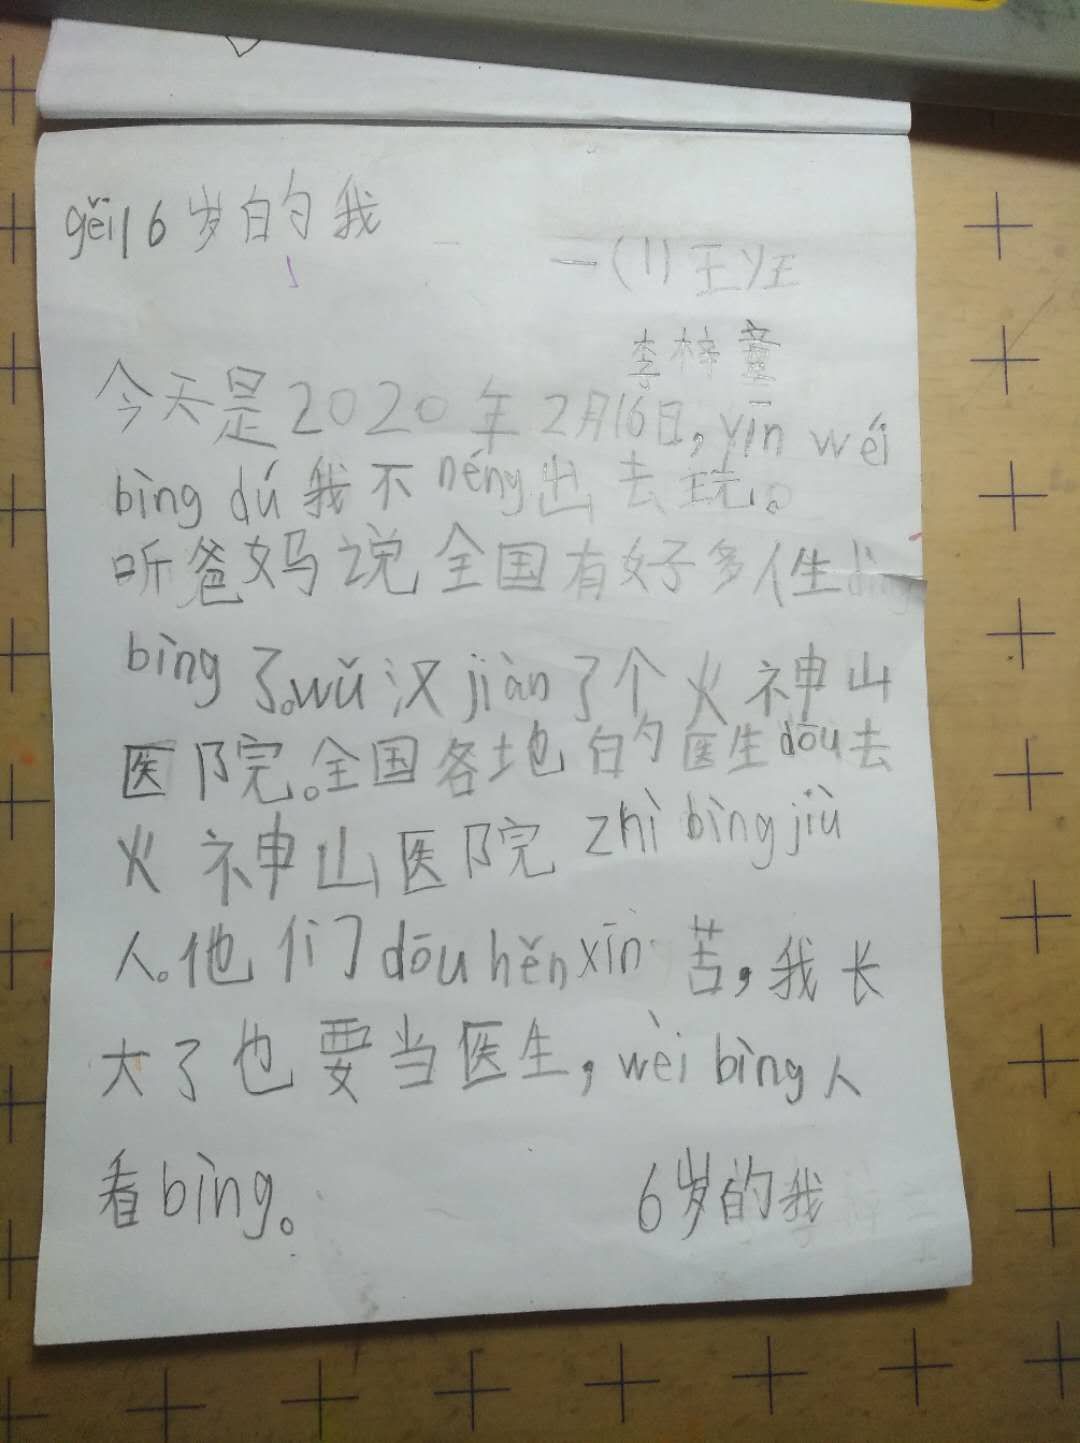 gěi16岁的我
一(1)王班
李梓童
今天是2020年2月16日,yīn wéi
bìng dú我不néng出去玩。
听爸妈说全国有好多人生
bìng了。wǔ汉jiàn了个火神山
医院。全国各地的医生dōu去
火神山医院zhì bìng jiù
人。他们dōu hěn xīn苦,我长
大了也要当医生,wèi bìng人
看bìng。
6岁的我